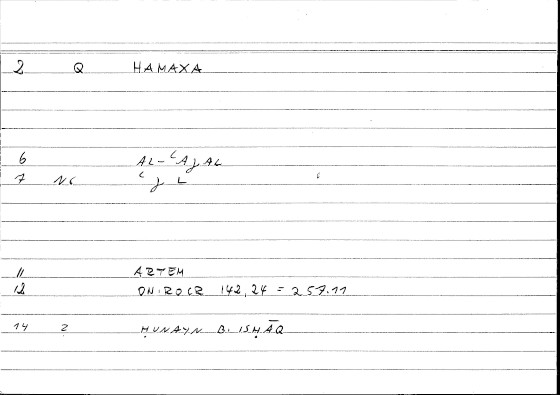 2 Q HAMAXA
6 AL-ʿAǧAL
7 NC ʿǧL
11 ARTEM
12 ONIROCR 142,24 = 257.11
14 2 ḤUNAYN B. ISḤĀQ